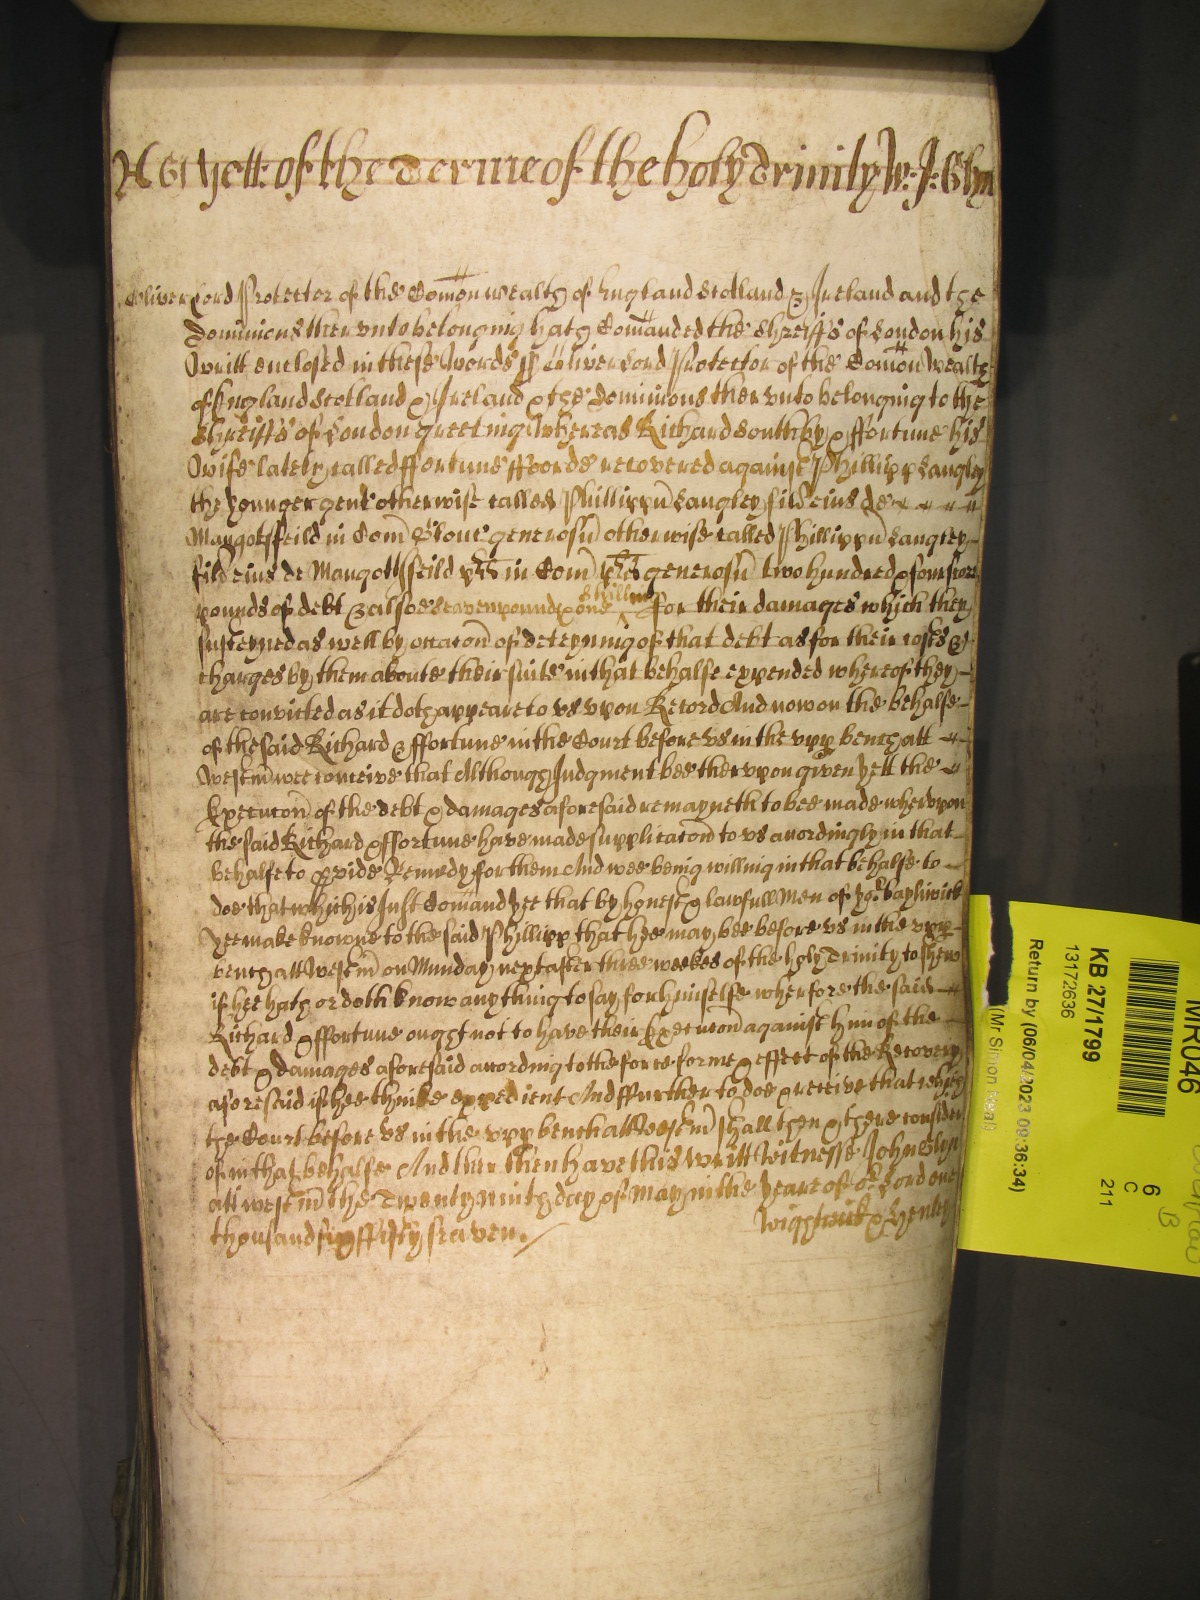 yett of the Terme of the holy Trinity W: J: Glyn
Oliver Lord Protector of the Comon wealth of England Scotland & Ireland and the
Dominions therunto belonging hath Comanded the Shreiffs of London his
Writt enclosed in these Words ss Oliver Lord Protector of the Comon Wealth
of England Scotland & Ireland & the dominions therunto belonging to the
Shreiffs of London greeting Whereas Richard Southby & ffortune his
Wife lately called ffortune fforde recovered against Phillipp Langley
the younger gent otherwise called Phillippu Langley fil eius de
Mangotsfeild in Com Glouc generosu otherwise called Phillippu Langley
fil eius de Mangottsfeild in Com generosu two hundred & fourscore
pounds of debt & alsoe seaven pound & one shilling for their damages which they
susteyned as well by occacon of deteyning of that debt as for their costs &
charges by them aboute their suite in that behalfe expended whereof they
are convicted as it doth appeare to us upon Record And now on the behalfe
of the said Richard & ffortune in the Court before us in the upp bench att
Westm wee conceive that Although Judgment bee therupon given yett the
Execucon of the debt & damages aforesaid remayneth to bee made wherupon
the said Richard & ffortune have made supplicacon to us accordingly in that
behalfe to pvide Remedy for them And wee being willing in that behalfe to
doe that which is Just Comand yee that by honest & lawfull Men of yor baylywick
yee make knowne to the said Phillipp that hee may bee before us in the upp
bench att Westm on Munday next after three weekes of the holy Trinity to shew
if hee hath or doth know any thing to say for himselfe wherfore the said
Richard & ffortune ought not to have their Execucon against him of the
debt & damages aforesaid according to the force forme & effect of the Recovery
aforesaid if hee thinke expedient And ffurther to doe & receive that which
the Court before us in the upp bench att Westm shall then & there consider
of in that behalfe And ther then have this Writt Witnesse John Glyn
att westm the Twenty ninth day of May in the yeare of or Lord one
thousand six ffifty seaven. Wightwick & Henley
MR046
KB 27/1799
13172636
Return by (06/04/2023 09:36:34)
(Mr Simon Neal)
6
C
211
B